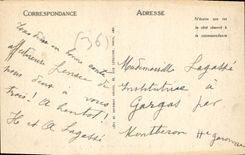 CORRESPONDANCE
ADRESSE
N'écrire que sur
le côté réservé à
la correspondance
(36)
Sommes en bonne santé
affectueuse pensée de
nous deux à vous
trois ! A bientôt !
H et A Lagassé
Mademoiselle Lagassé
Institutrice à
Gargas par
Montberon Hte garonne